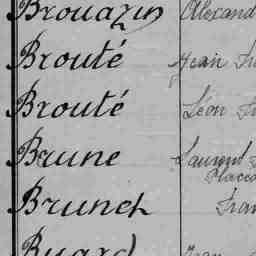 Brouazin Alexand
Brouté Jean
Brouté Léon
Brune Laurent
Place
Brunch Fran
Buard Jean